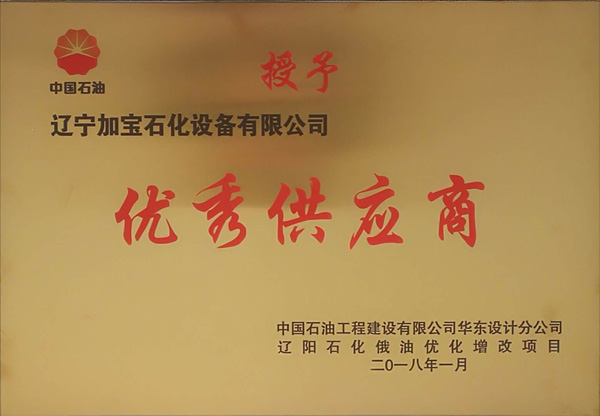 授予
中国石油
辽宁加宝石化设备有限公司
优秀供应商
中国石油工程建设有限公司华东设计分公司
辽阳石化俄油优化增改项目
二〇一八年一月